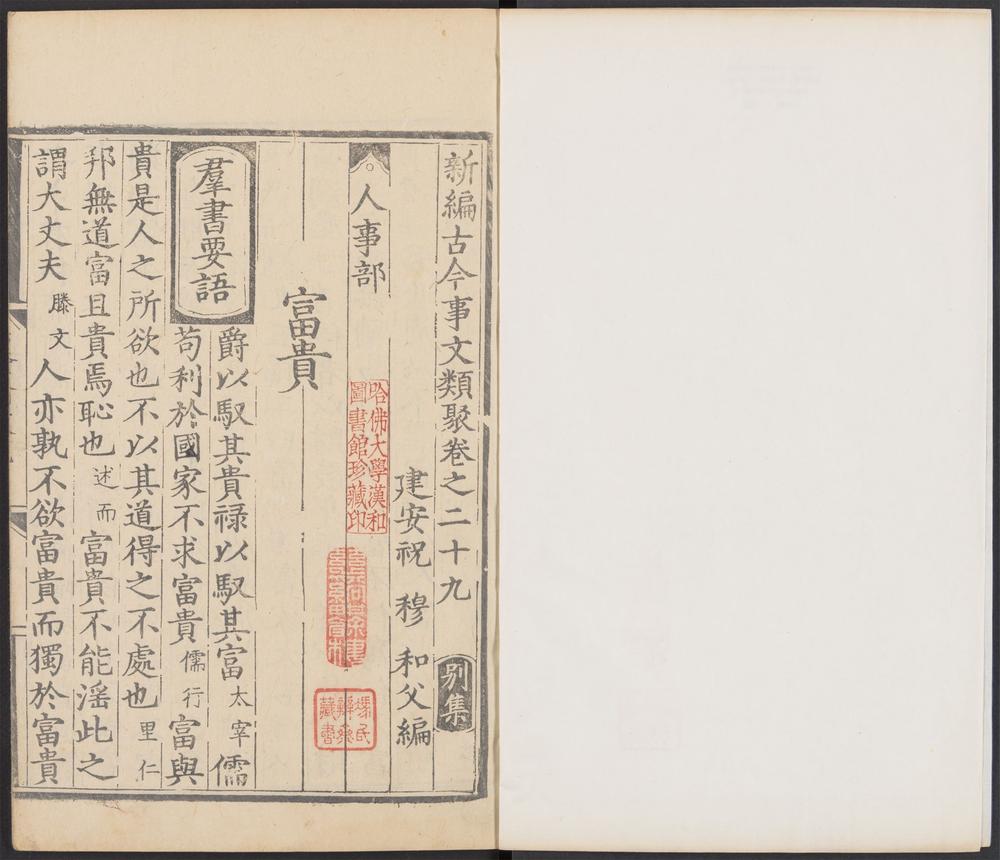 新編古今事文類聚卷之二十九 别集
建安祝 穆 和父編
人事部
富貴
羣書要語
爵以馭其貴祿以馭其富 太宰 儒
苟利於國家不求富貴 儒行 富與
貴是人之所欲也不以其道得之不處也 里仁
邦無道富且貴焉恥也 述而 富貴不能滛此之
謂大丈夫 滕文 人亦孰不欲富貴而獨於富貴
哈佛大學漢和
圖書館珍藏印